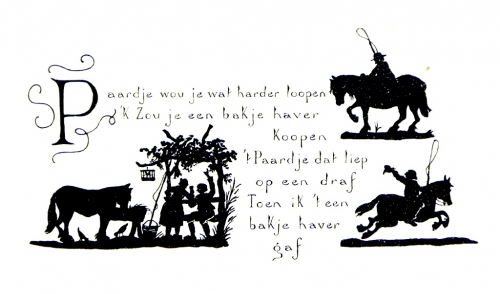 Paardje wou je wat harder loopen
'k Zou je een bakje haver
Koopen
't Paardje dat liep
op een draf
Toen ik 't een
bakje haver
gaf